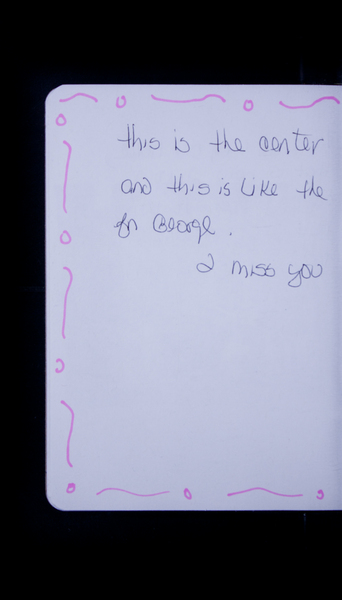 this is the center
and this is like the
fn George.
I miss you